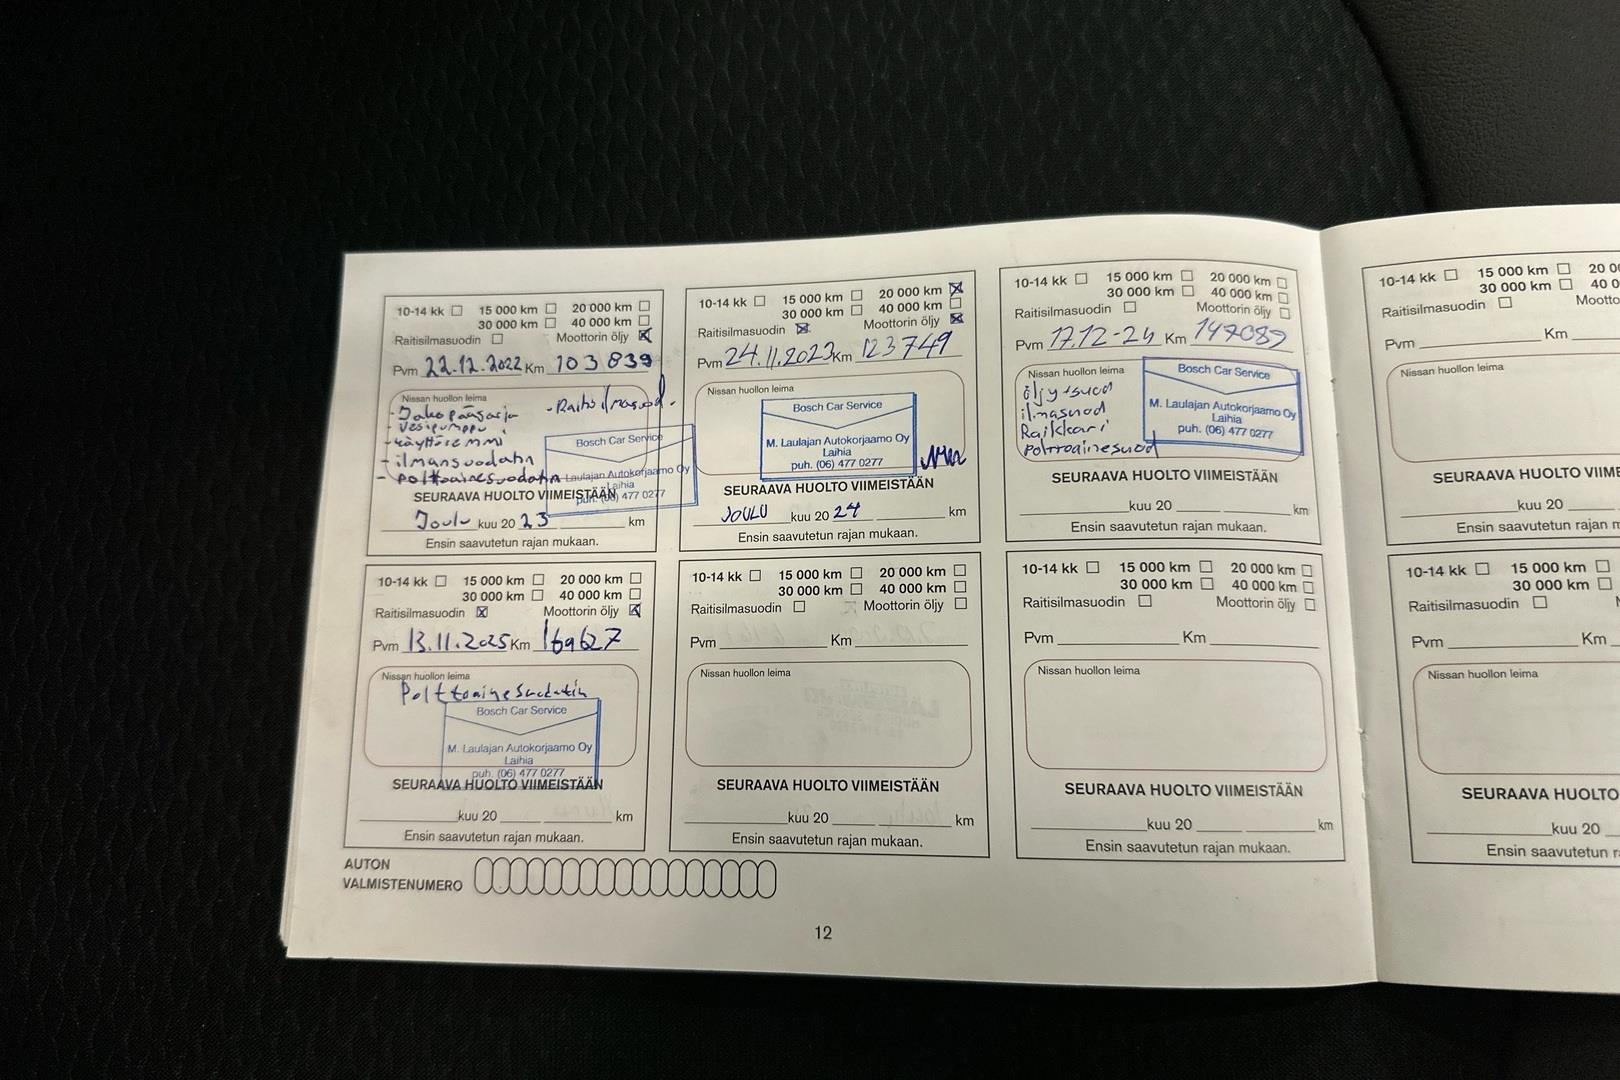 10-14 kk ☐ 15 000 km ☐ 20 000 km ☐
30 000 km ☐ 40 000 km ☐
Raitisilmasuodin ☐ Moottorin öljy ☒
Pvm 22.12.2022 Km 103 839
Nissan huollon leima
- Jakopääsarja - Raitisilmasuod.
- vesipumppu
- ilmansuodatin
- polttoainesuodatin
Bosch Car Service
M. Laulajan Autokorjaamo Oy
Laihia
puh. (06) 477 0277
SEURAAVA HUOLTO VIIMEISTÄÄN
Joulu kuu 20 23 km
Ensin saavutetun rajan mukaan.
10-14 kk ☐ 15 000 km ☐ 20 000 km ☒
30 000 km ☐ 40 000 km ☐
Raitisilmasuodin ☒ Moottorin öljy ☒
Pvm 24.11.2023 Km 123749
Nissan huollon leima
Bosch Car Service
M. Laulajan Autokorjaamo Oy
Laihia
puh. (06) 477 0277
SEURAAVA HUOLTO VIIMEISTÄÄN
JOULU kuu 20 24 km
Ensin saavutetun rajan mukaan.
10-14 kk ☐ 15 000 km ☐ 20 000 km ☐
30 000 km ☐ 40 000 km ☐
Raitisilmasuodin ☐ Moottorin öljy ☐
Pvm 17.12-24 Km 147089
Nissan huollon leima
öljy+suod
ilmasuod
Raikkari
polttoainesuod
Bosch Car Service
M. Laulajan Autokorjaamo Oy
Laihia
puh. (06) 477 0277
SEURAAVA HUOLTO VIIMEISTÄÄN
kuu 20 km
Ensin saavutetun rajan mukaan.
10-14 kk ☐ 15 000 km ☐ 20 0
30 000 km ☐ 40 0
Raitisilmasuodin ☐ Mootto
Pvm Km
Nissan huollon leima
SEURAAVA HUOLTO VIIME
kuu 20
Ensin saavutetun rajan m
10-14 kk ☐ 15 000 km ☐ 20 000 km ☐
30 000 km ☐ 40 000 km ☐
Raitisilmasuodin ☒ Moottorin öljy ☒
Pvm 13.11.2025 Km 169627
Nissan huollon leima
Polttoainesuodatin
Bosch Car Service
M. Laulajan Autokorjaamo Oy
Laihia
puh. (06) 477 0277
SEURAAVA HUOLTO VIIMEISTÄÄN
kuu 20 km
Ensin saavutetun rajan mukaan.
10-14 kk ☐ 15 000 km ☐ 20 000 km ☐
30 000 km ☐ 40 000 km ☐
Raitisilmasuodin ☐ Moottorin öljy ☐
Pvm Km
Nissan huollon leima
SEURAAVA HUOLTO VIIMEISTÄÄN
kuu 20 km
Ensin saavutetun rajan mukaan.
10-14 kk ☐ 15 000 km ☐ 20 000 km ☐
30 000 km ☐ 40 000 km ☐
Raitisilmasuodin ☐ Moottorin öljy ☐
Pvm Km
Nissan huollon leima
SEURAAVA HUOLTO VIIMEISTÄÄN
kuu 20 km
Ensin saavutetun rajan mukaan.
10-14 kk ☐ 15 000 km ☐
30 000 km ☐
Raitisilmasuodin ☐
Pvm Km
Nissan huollon leima
SEURAAVA HUOLTO
kuu 20
Ensin saavutetun r
AUTON
VALMISTENUMERO
12